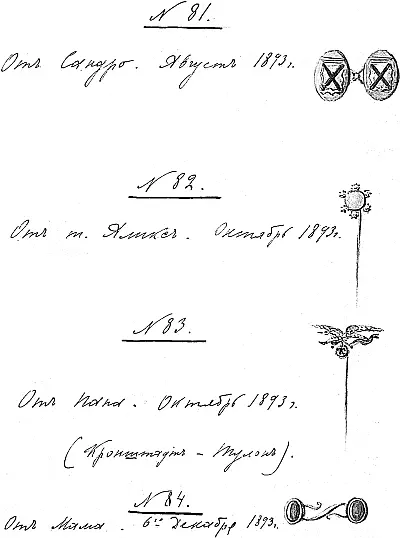 N 81.
Отъ Сандро. Августъ 1893 г.
N 82.
Отъ т. Аликсъ. Октябрь 1893 г.
N 83.
Отъ Папа. Октябрь 1893 г.
(Кронштадтъ - Тулонъ).
N 84.
Отъ Мама. 6го Декабря 1893 г.